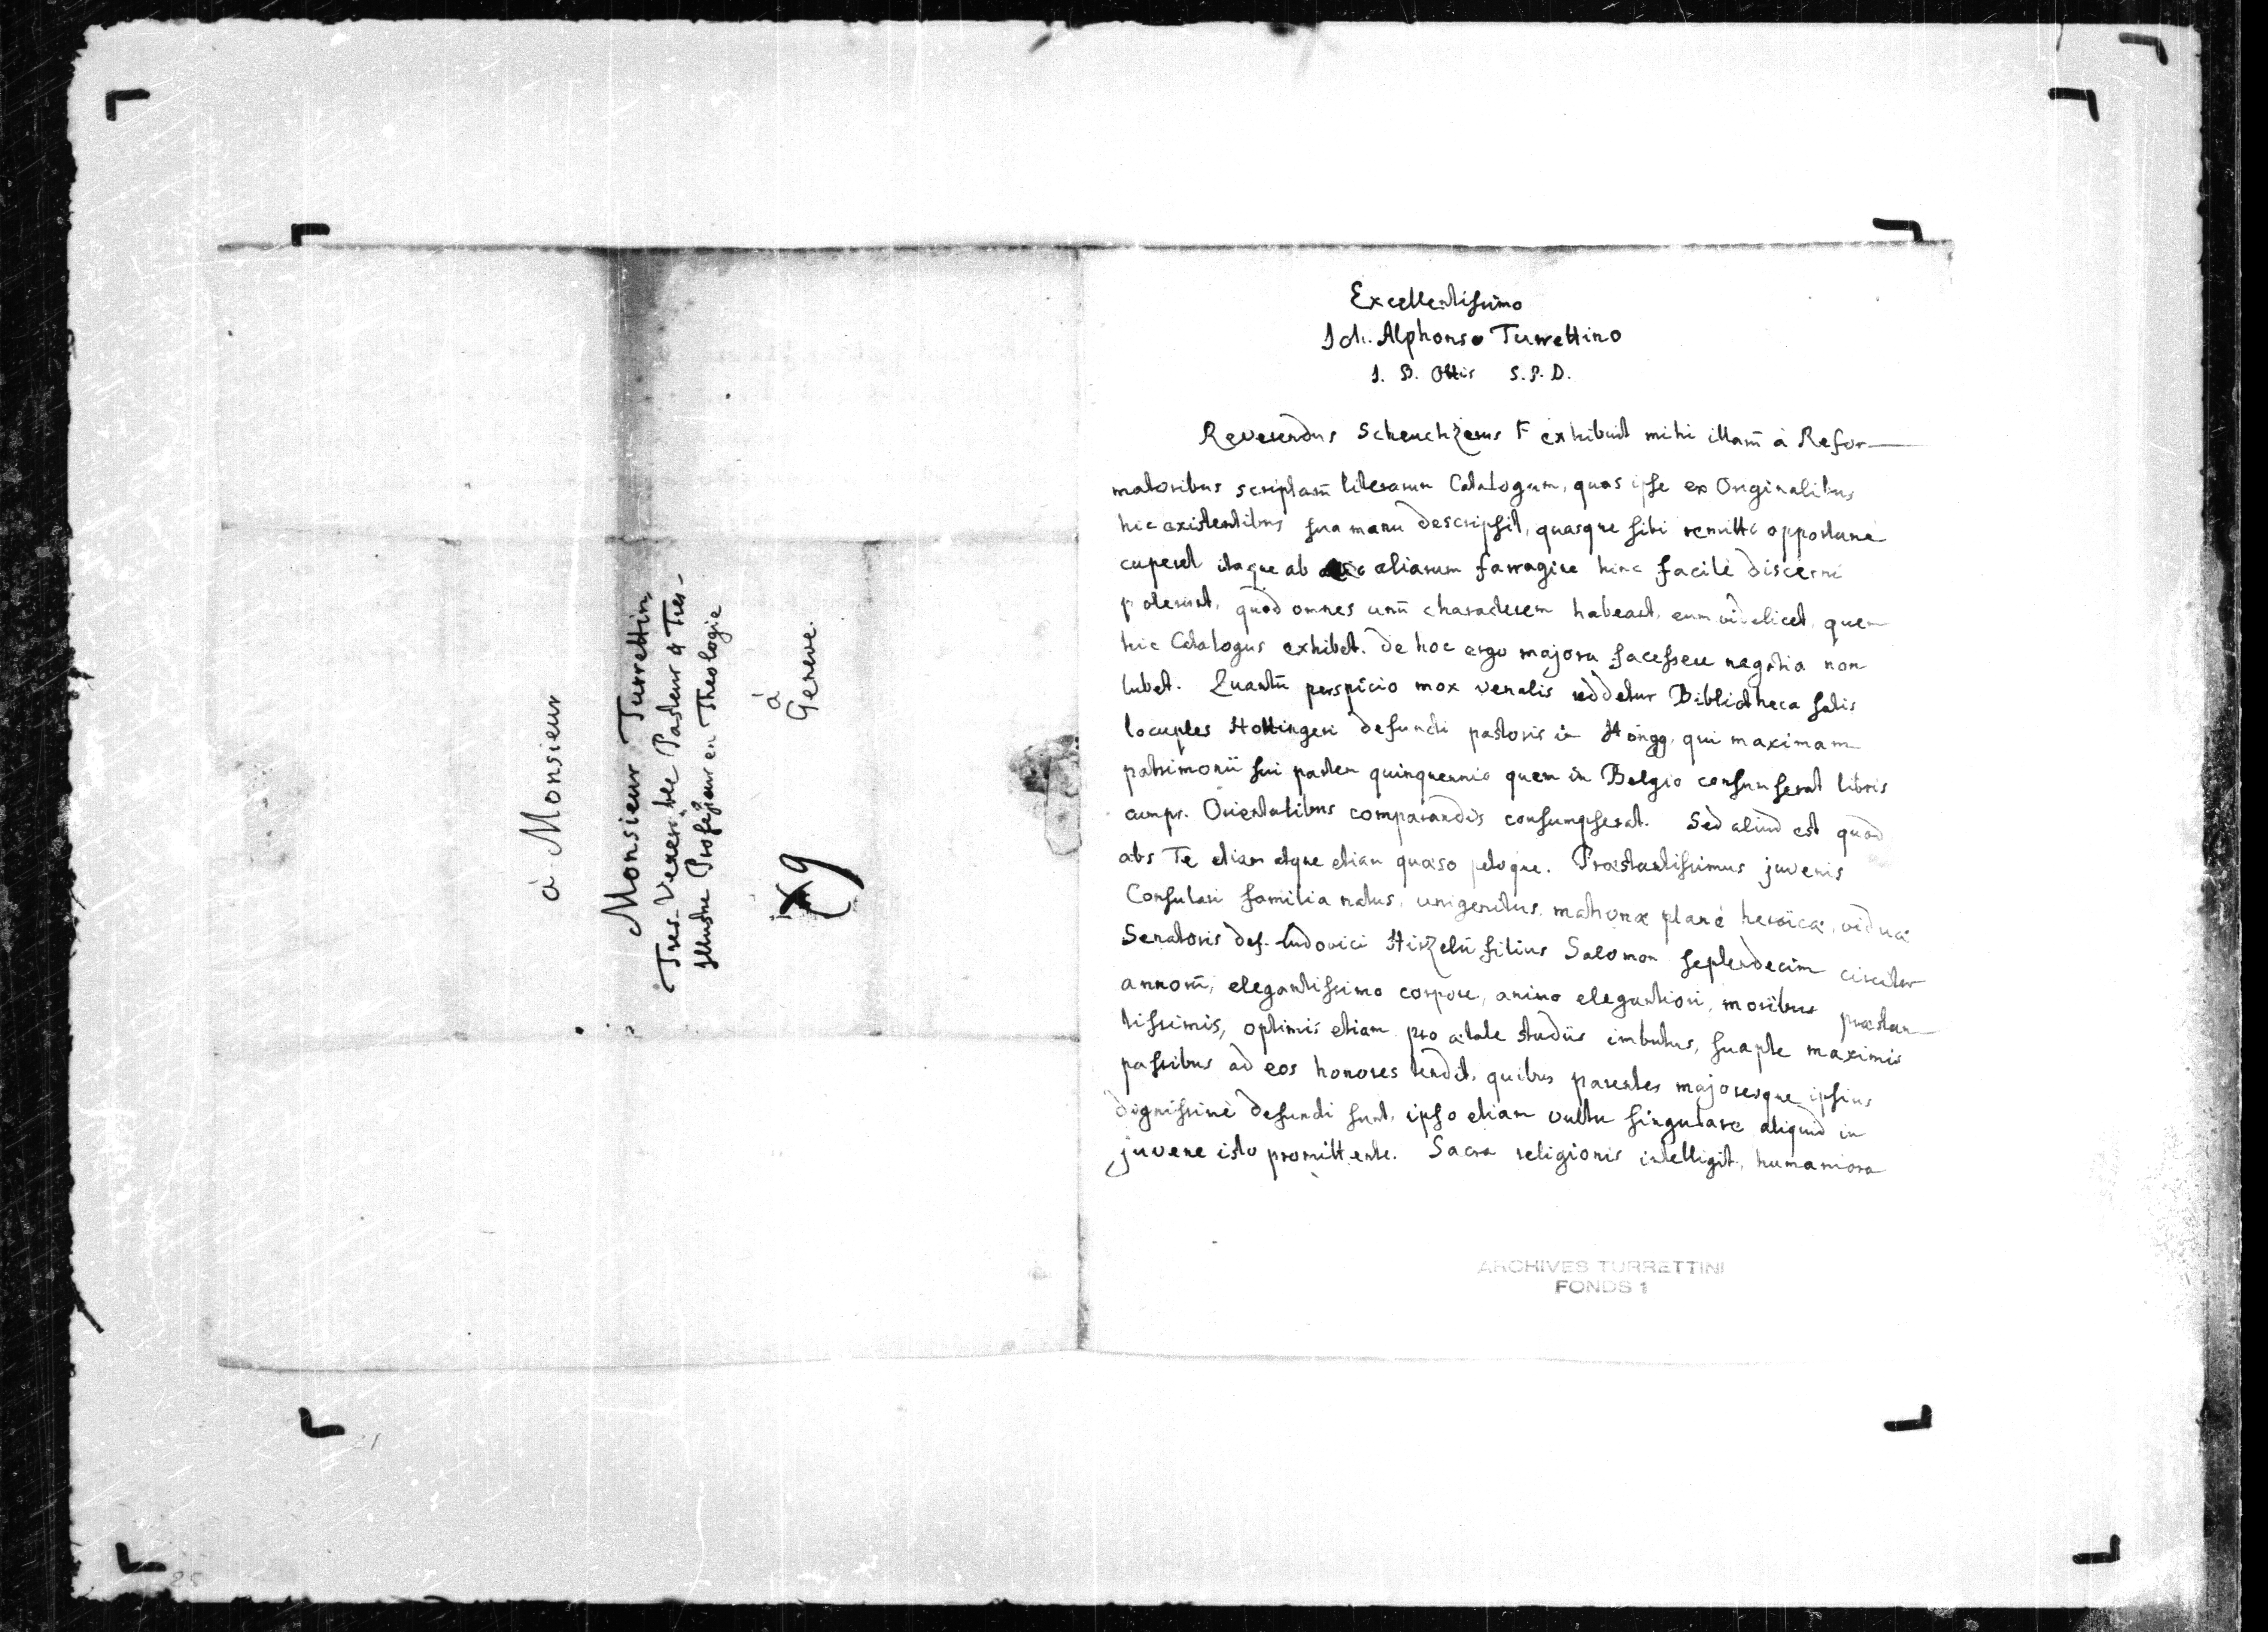 à Monsieur
Monsieur Turrettin,
Tres-Venerable Pasteur & Tres-
Illustre Professeur en Theologie
à
Geneve.
x9
Excellentissimo
Joh. Alphonso Turrettino
J. B. Ottis S. P. D.
Reverendus Scheuchzerus F exhibuit mihi illarū à Refor-
matoribus scriptarū literarum Catalogum, quas ipse ex Originalibus
hic existentibus sua manu descripsit, quasque sibi remitti opportune
cuperet itaque ab aliarum farragine hinc facilè discerni
poterunt, quod omnes unū characterem habeant, eum videlicet, quem
hic Catalogus exhibet. de hoc ergo majora facessere negotia non
lubet. Quantū perspicio mox venalis reddetur Bibliotheca satis
locuples Hottingeri defuncti pastoris in Höngg, qui maximam
patrimonii sui partem quinquennio quem in Belgio consumserat libris
cumpr. Orientalibus comparandis consumpserat. Sed aliud est quod
abs Te etiam atque etiam quæso petoque. Præstantissimus juvenis
Consulari familia natus, unigenitus matronæ planè heroicæ, viduæ
Senatoris def. Ludovici Hirzelii filius Salomon septendecim circiter
annorū, elegantissimo corpore, animo elegantiori, moribus præstan-
tissimis, optimis etiam pro ætate studiis imbutus, suapte maximis
passibus ad eos honores tendit, quibus parentes majoresque ipsius
dignissimè defuncti sunt, ipso etiam vultu singulare aliquid in
juvene isto promittente. Sacra religionis intelligit, humaniora
ARCHIVES TURRETTINI
FONDS 1
21
25